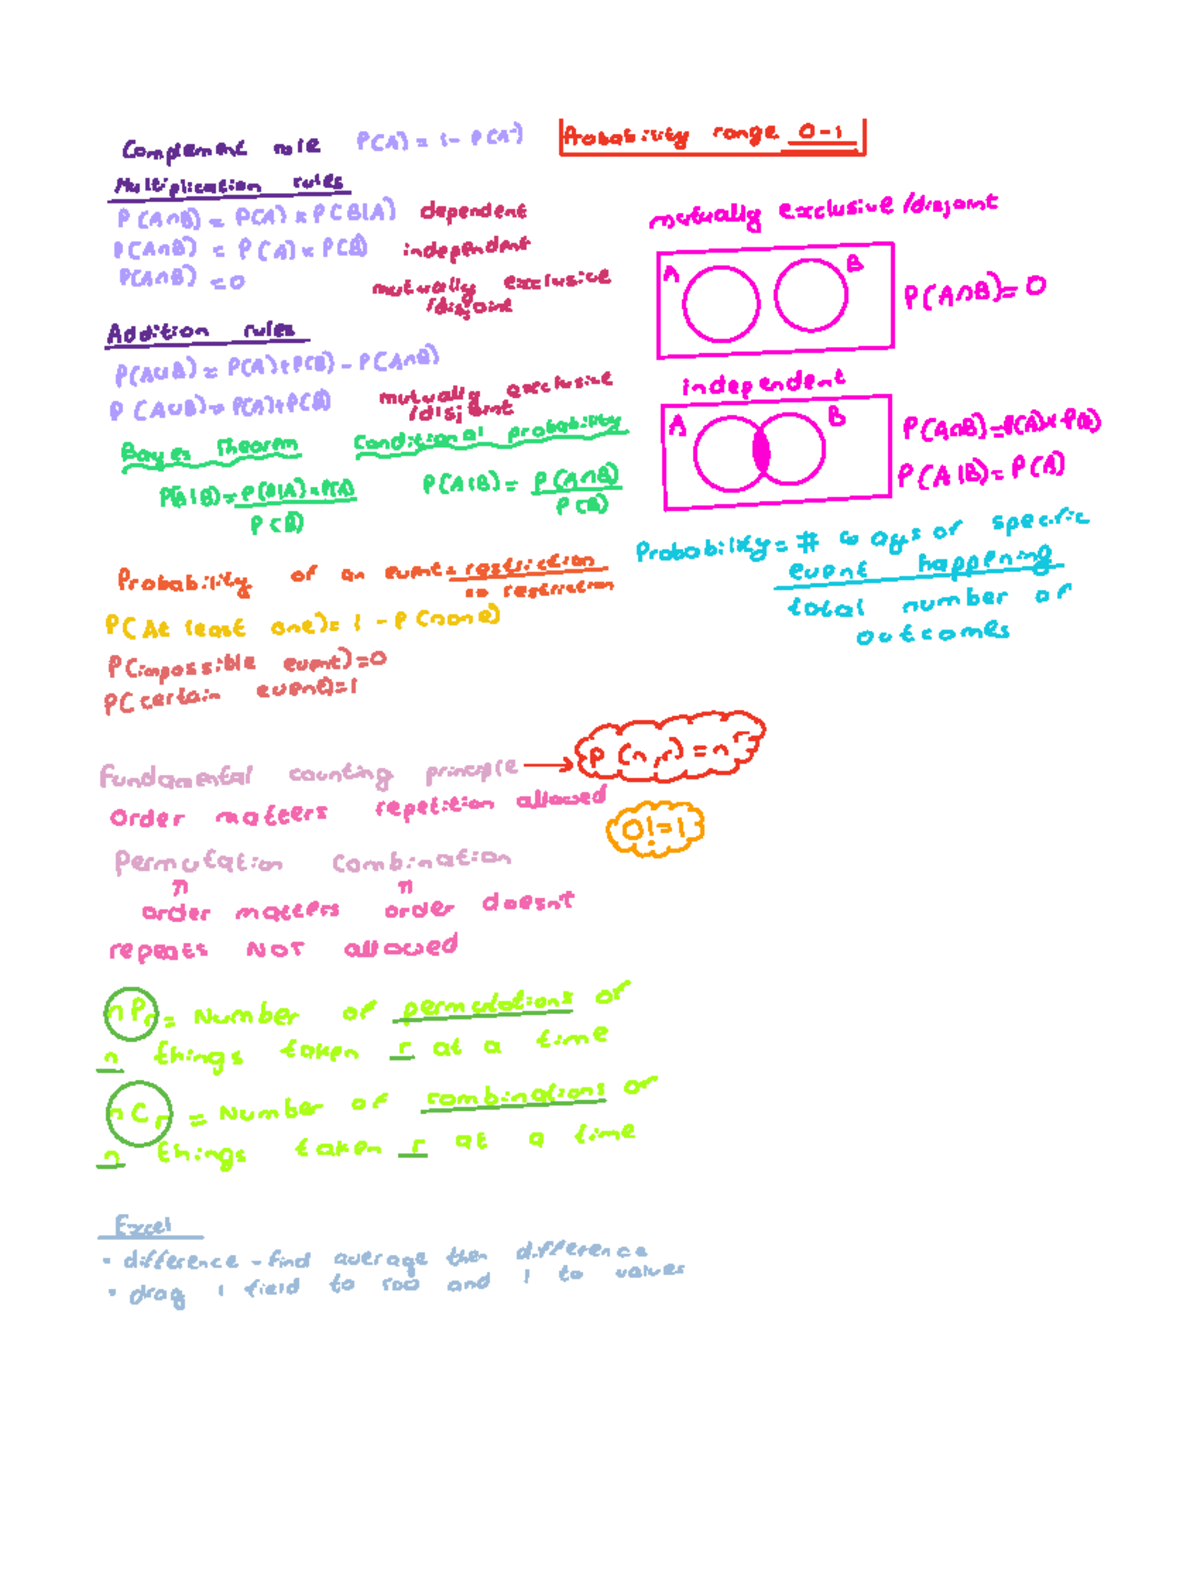 Complement rule P(A) = 1 - P(A')
Probability range 0-1
Multiplication rules
P(A∩B) = P(A) × P(B|A) dependent
P(A∩B) = P(A) × P(B) independent
P(A∩B) = 0 mutually exclusive
/disjoint
Addition rules
P(A∪B) = P(A)+P(B) - P(A∩B)
P(A∪B) = P(A)+P(B) mutually exclusive
/disjoint
Bayes Theorem Conditional probability
P(A|B) = P(B|A) × P(A)
P(B)
P(A|B) = P(A∩B)
P(B)
mutually exclusive /disjoint
A B
P(A∩B) = 0
independent
A B
P(A∩B) = P(A) × P(B)
P(A|B) = P(A)
Probability of an event = restriction
no restriction
P(At least one) = 1 - P(none)
P(impossible event) = 0
P(certain event) = 1
Probability = # ways of specific
event happening
total number of
outcomes
Fundamental counting principle → P(n,r) = n^r
order matters repetition allowed
0! = 1
Permutation Combination
n n
order matters order doesnt
repeats NOT allowed
nPr = Number of permutations of
n things taken r at a time
nCr = Number of combinations of
n things taken r at a time
Excel
• difference - find average then difference
• drag 1 field to row and 1 to values